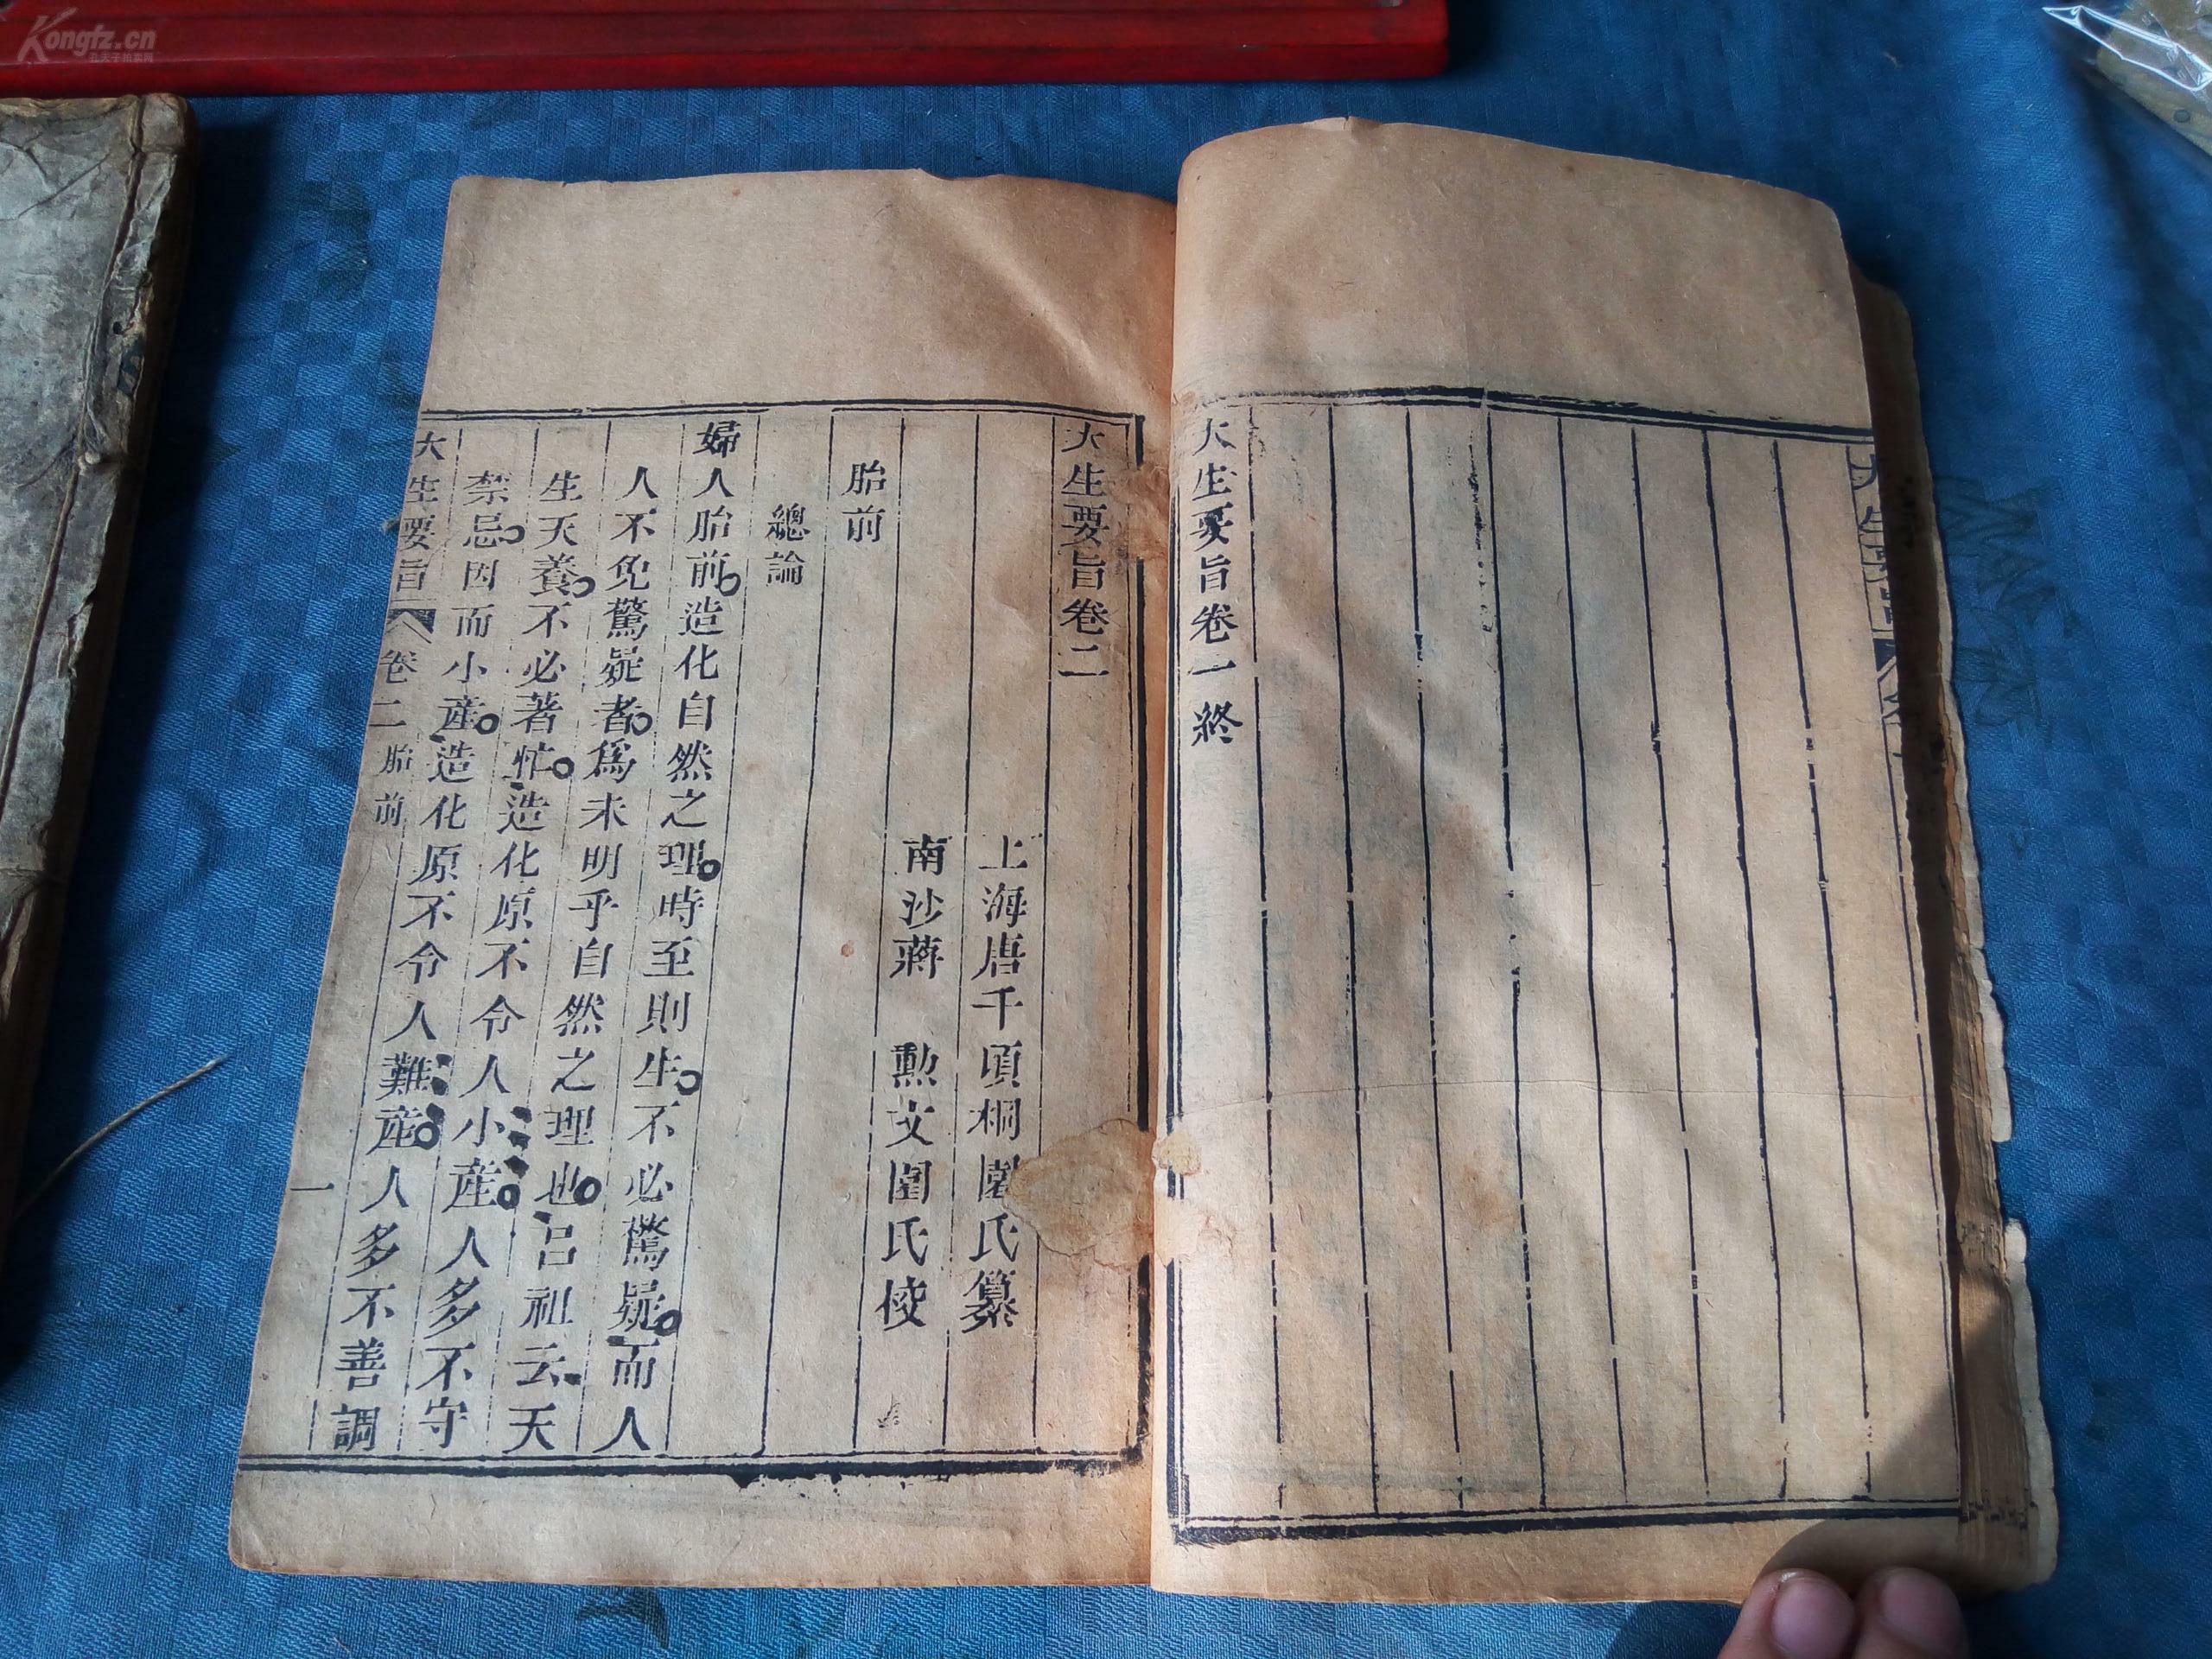 Kongfz.cn
大生要旨
大生要旨卷一終
大生要旨卷二
上海唐千頃桐園氏纂
南沙蔣　勲文圍氏校
胎前
總論
婦人胎前造化自然之理時至則生不必驚疑而人
人不免驚疑者為未明乎自然之理也呂祖云天
生天養不必著忙造化原不令人小產人多不守
禁忌因而小產造化原不令人難產人多不善調
大生要旨 卷二 胎前 一